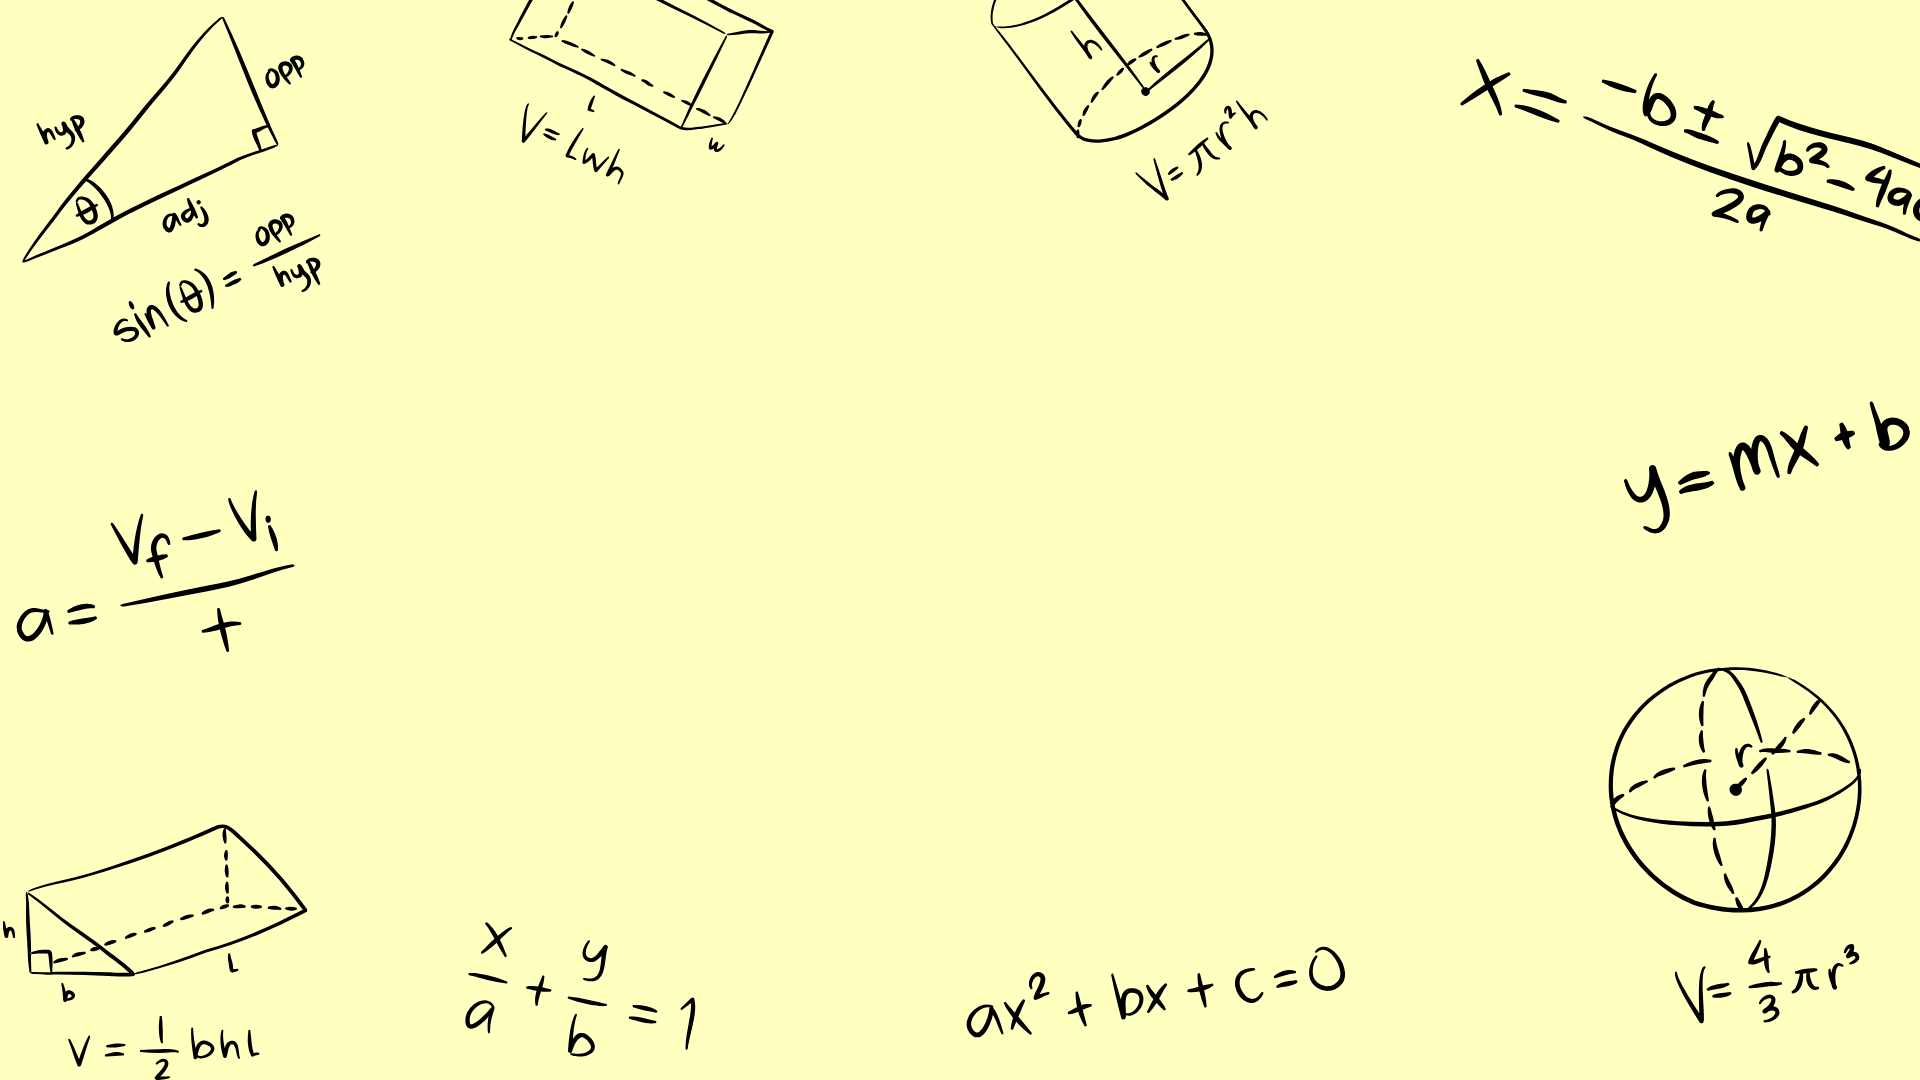 hyp
opp
θ
adj
sin(θ) = opp/hyp
L
w
V = Lwh
h
r
V = πr²h
x = -b ± √b² - 4ac
2a
y = mx + b
a = Vf - Vi / t
r
V = 4/3 πr³
h
b
L
V = 1/2 bhL
x/a + y/b = 1
ax² + bx + c = 0